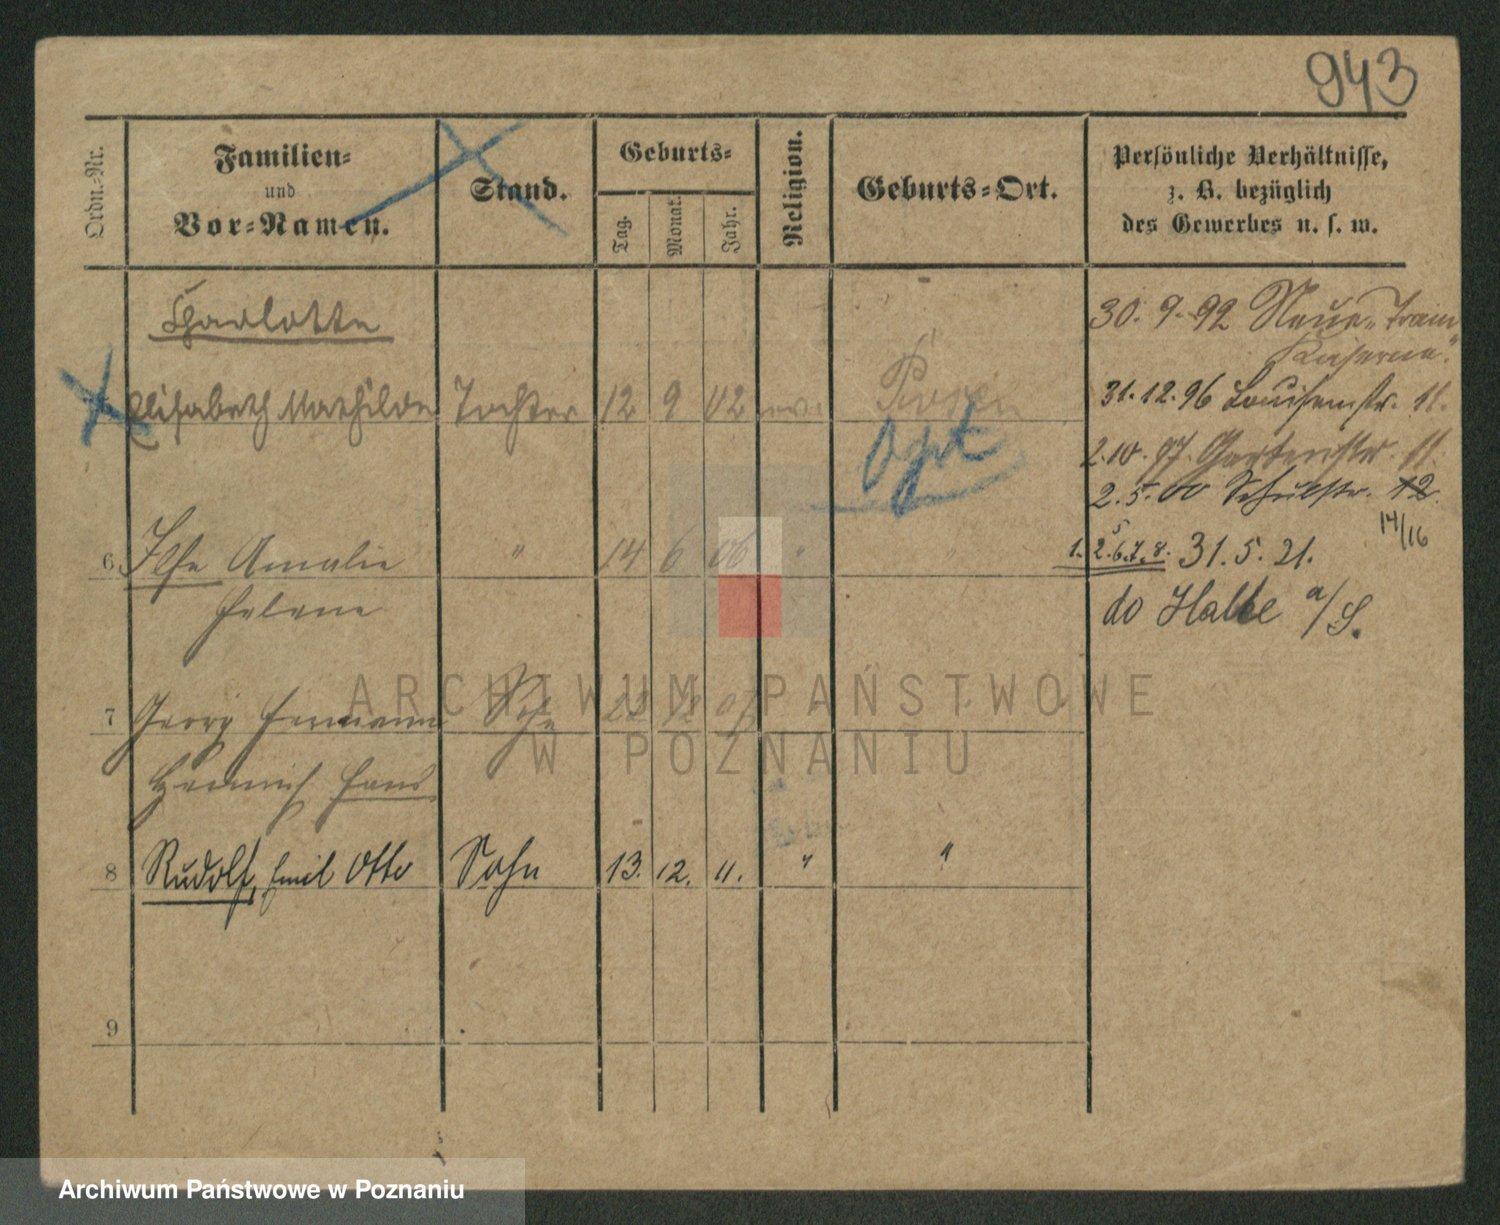 943
Ordn.-Nr.
Familien-
und
Vor-Namen.
Stand.
Geburts-
Tag.
Monat.
Jahr.
Religion.
Geburts-Ort.
Persönliche Verhältnisse,
z. B. bezüglich
des Gewerbes u. s. w.
Charlotte
30. 9. 92 Neue "Train
Kaserne."
Elisabeth Mathilde Tochter 12 9 02 ev. Posen
31.12.96 Louisenstr. 11.
2.10.97. Gartenstr. 11.
2.5.00 Schulstr. 12.
14/16
6 Ilse Amalie " 14 6 06 " "
Helene
1. 2. 5 6. 7. 8. 31. 5. 21.
do Halle a/S.
7 Georg Hermann Sohn
Heinrich Hans
8 Rudolf, Emil Otto Sohn 13. 12. 11. " "
9
ARCHIWUM PAŃSTWOWE
W POZNANIU
Archiwum Państwowe w Poznaniu